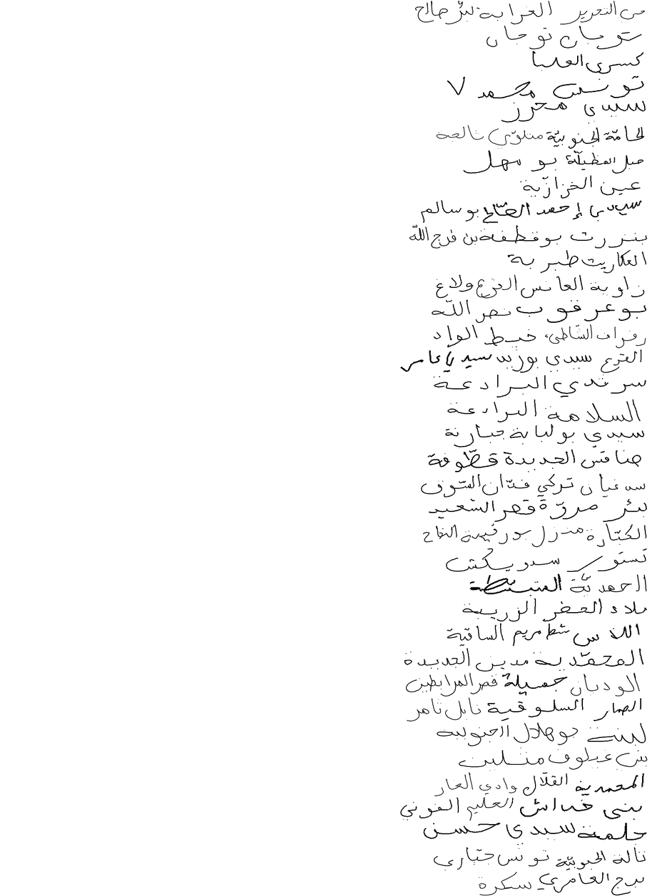 حي التحرير الغرابة بئر صالح
توجان توجان
كسرى العليا
تونس محمد ٧
سيدي محرز
الحامة الجنوبية منلوش تالعة
جبل العظيلة بو مهل
عين الخزازية
سيدي إحمد الصالح بوسالم
بنزرت بوقطفة بن فرج الله
العكاريت طبربة
زاوية العانس القرع ولاغ
بوعرقوب نصر الله
رفراف الشاطئ خيط الواد
القرع سيدي بوزيد سيدي عامر
سرندي البرادعة
السلامة البرادعة
سيدي بولبابة جبارنة
صفاقس الجديدة قطوفة
سفيان تركي فدان السوق
بئر مروة قصر السعيد
الكبارة منزل بورقيبة النفاح
تستور سيدي بكش
الحمدية المتبسطة
بلاد الحضر الزريبة
اللاس شط مريم الساقية
المحمدية مدين الجديدة
الوديان جميلة قصر المرابطين
الصمار السلوقية نابل تامر
لبنة بوهلال الجنوبية
بني غيلوف منسلبن
المحمدية القلال وادي العار
بني خداش العليم الفوني
جلمة سيدي حسن
تالة الجنوبية تونس جباري
برج العامري سكرة